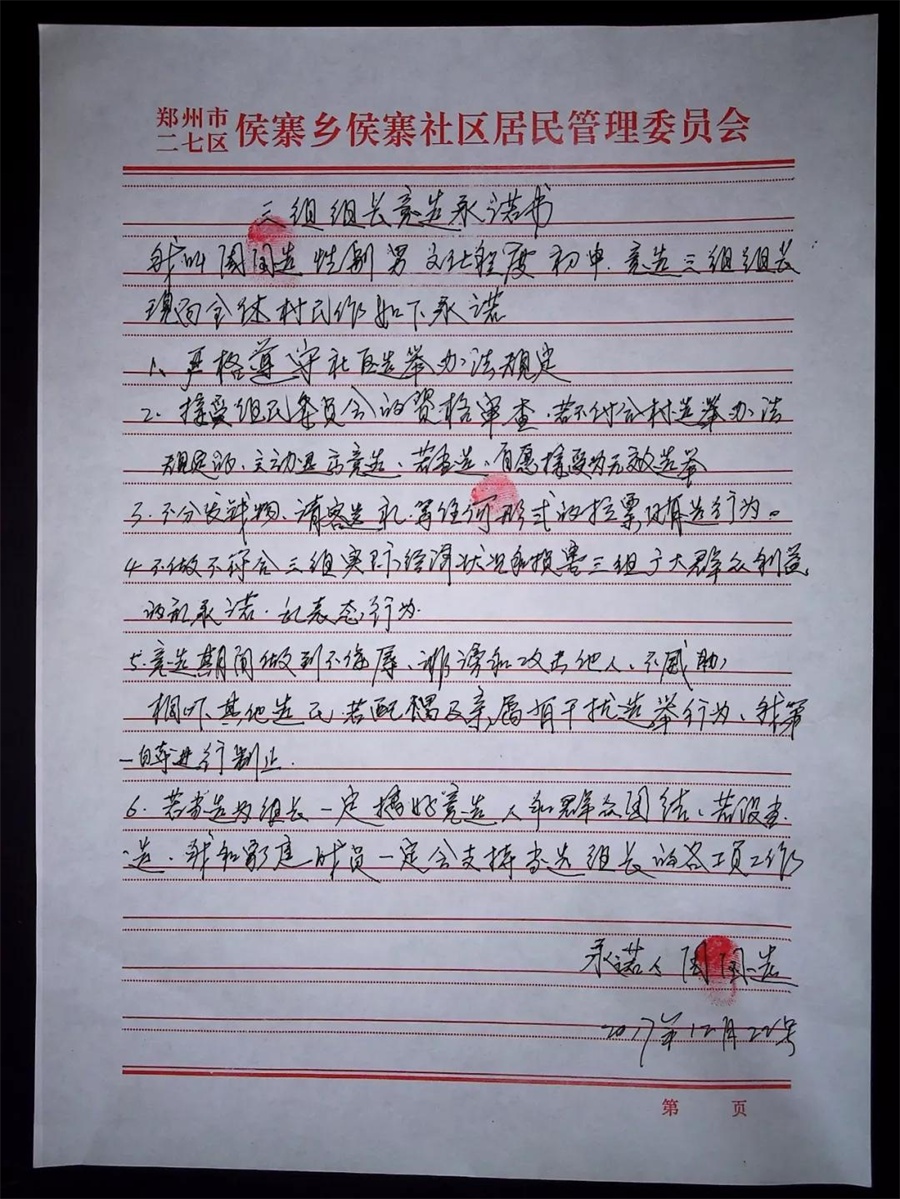 郑州市
二七区 侯寨乡侯寨社区居民管理委员会
三组组长竞选承诺书
我叫周国选 性别男 文化程度初中.竞选三组组长
现向全体村民作如下承诺
1、严格尊守社区选举办法规定
2、接受组民委员会的资格审查.若不付合村选举办法
规定的、主动退出竞选、若当选、自愿接受为无效选举
3、不分发财物、请客送礼等任何形式的拉票贿选行为。
4不做不符合三组实际经济状况和损害三组广大群众利益
的乱承诺.乱表态行为.
5.竞选期间做到不侮辱、诽谤和攻击他人、不威胁
恫吓其他选民若配偶及亲属有干扰选举行为、我第
一自来进行制止.
6.若当选为组长一定搞好竞选人和群众团结、若没当
选、我和家庭成员一定会支持当选组长的各项工作
承诺人 周国选
2017年12月22号
第 页